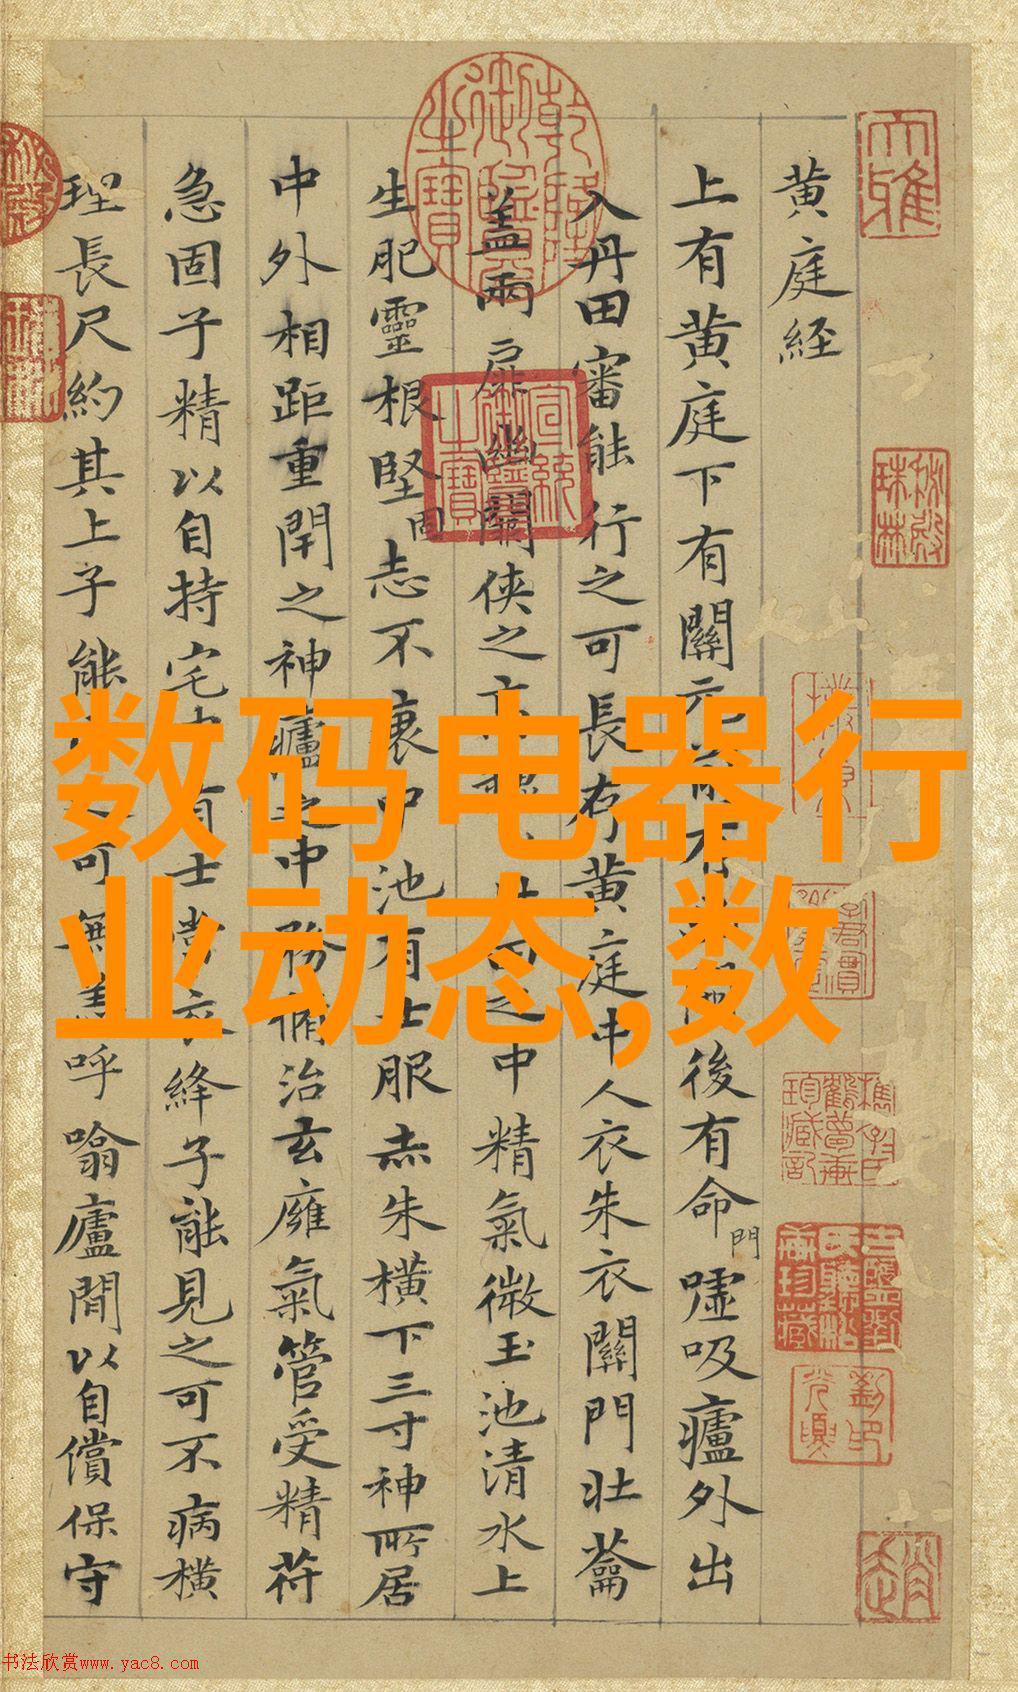 黄庭经
上有黄庭下有關元前有後有命門嘘吸廬外出
入丹田審能行之可長存黄庭中人衣朱衣關門壯蘥
蓋兩扉幽關俠之之中精氣微玉池清水上
生肥靈根堅固志不衰中池有士服赤朱橫下三寸神所居
中外相距重閉之神廬之中務脩治玄癰氣管受精符
急固子精以自持宅中有士常衣絳子能見之可不病橫
理長尺約其上子能可無恙呼噏廬間以自償保守
数码电器行
业动态,数
书法欣赏www.yac8.com